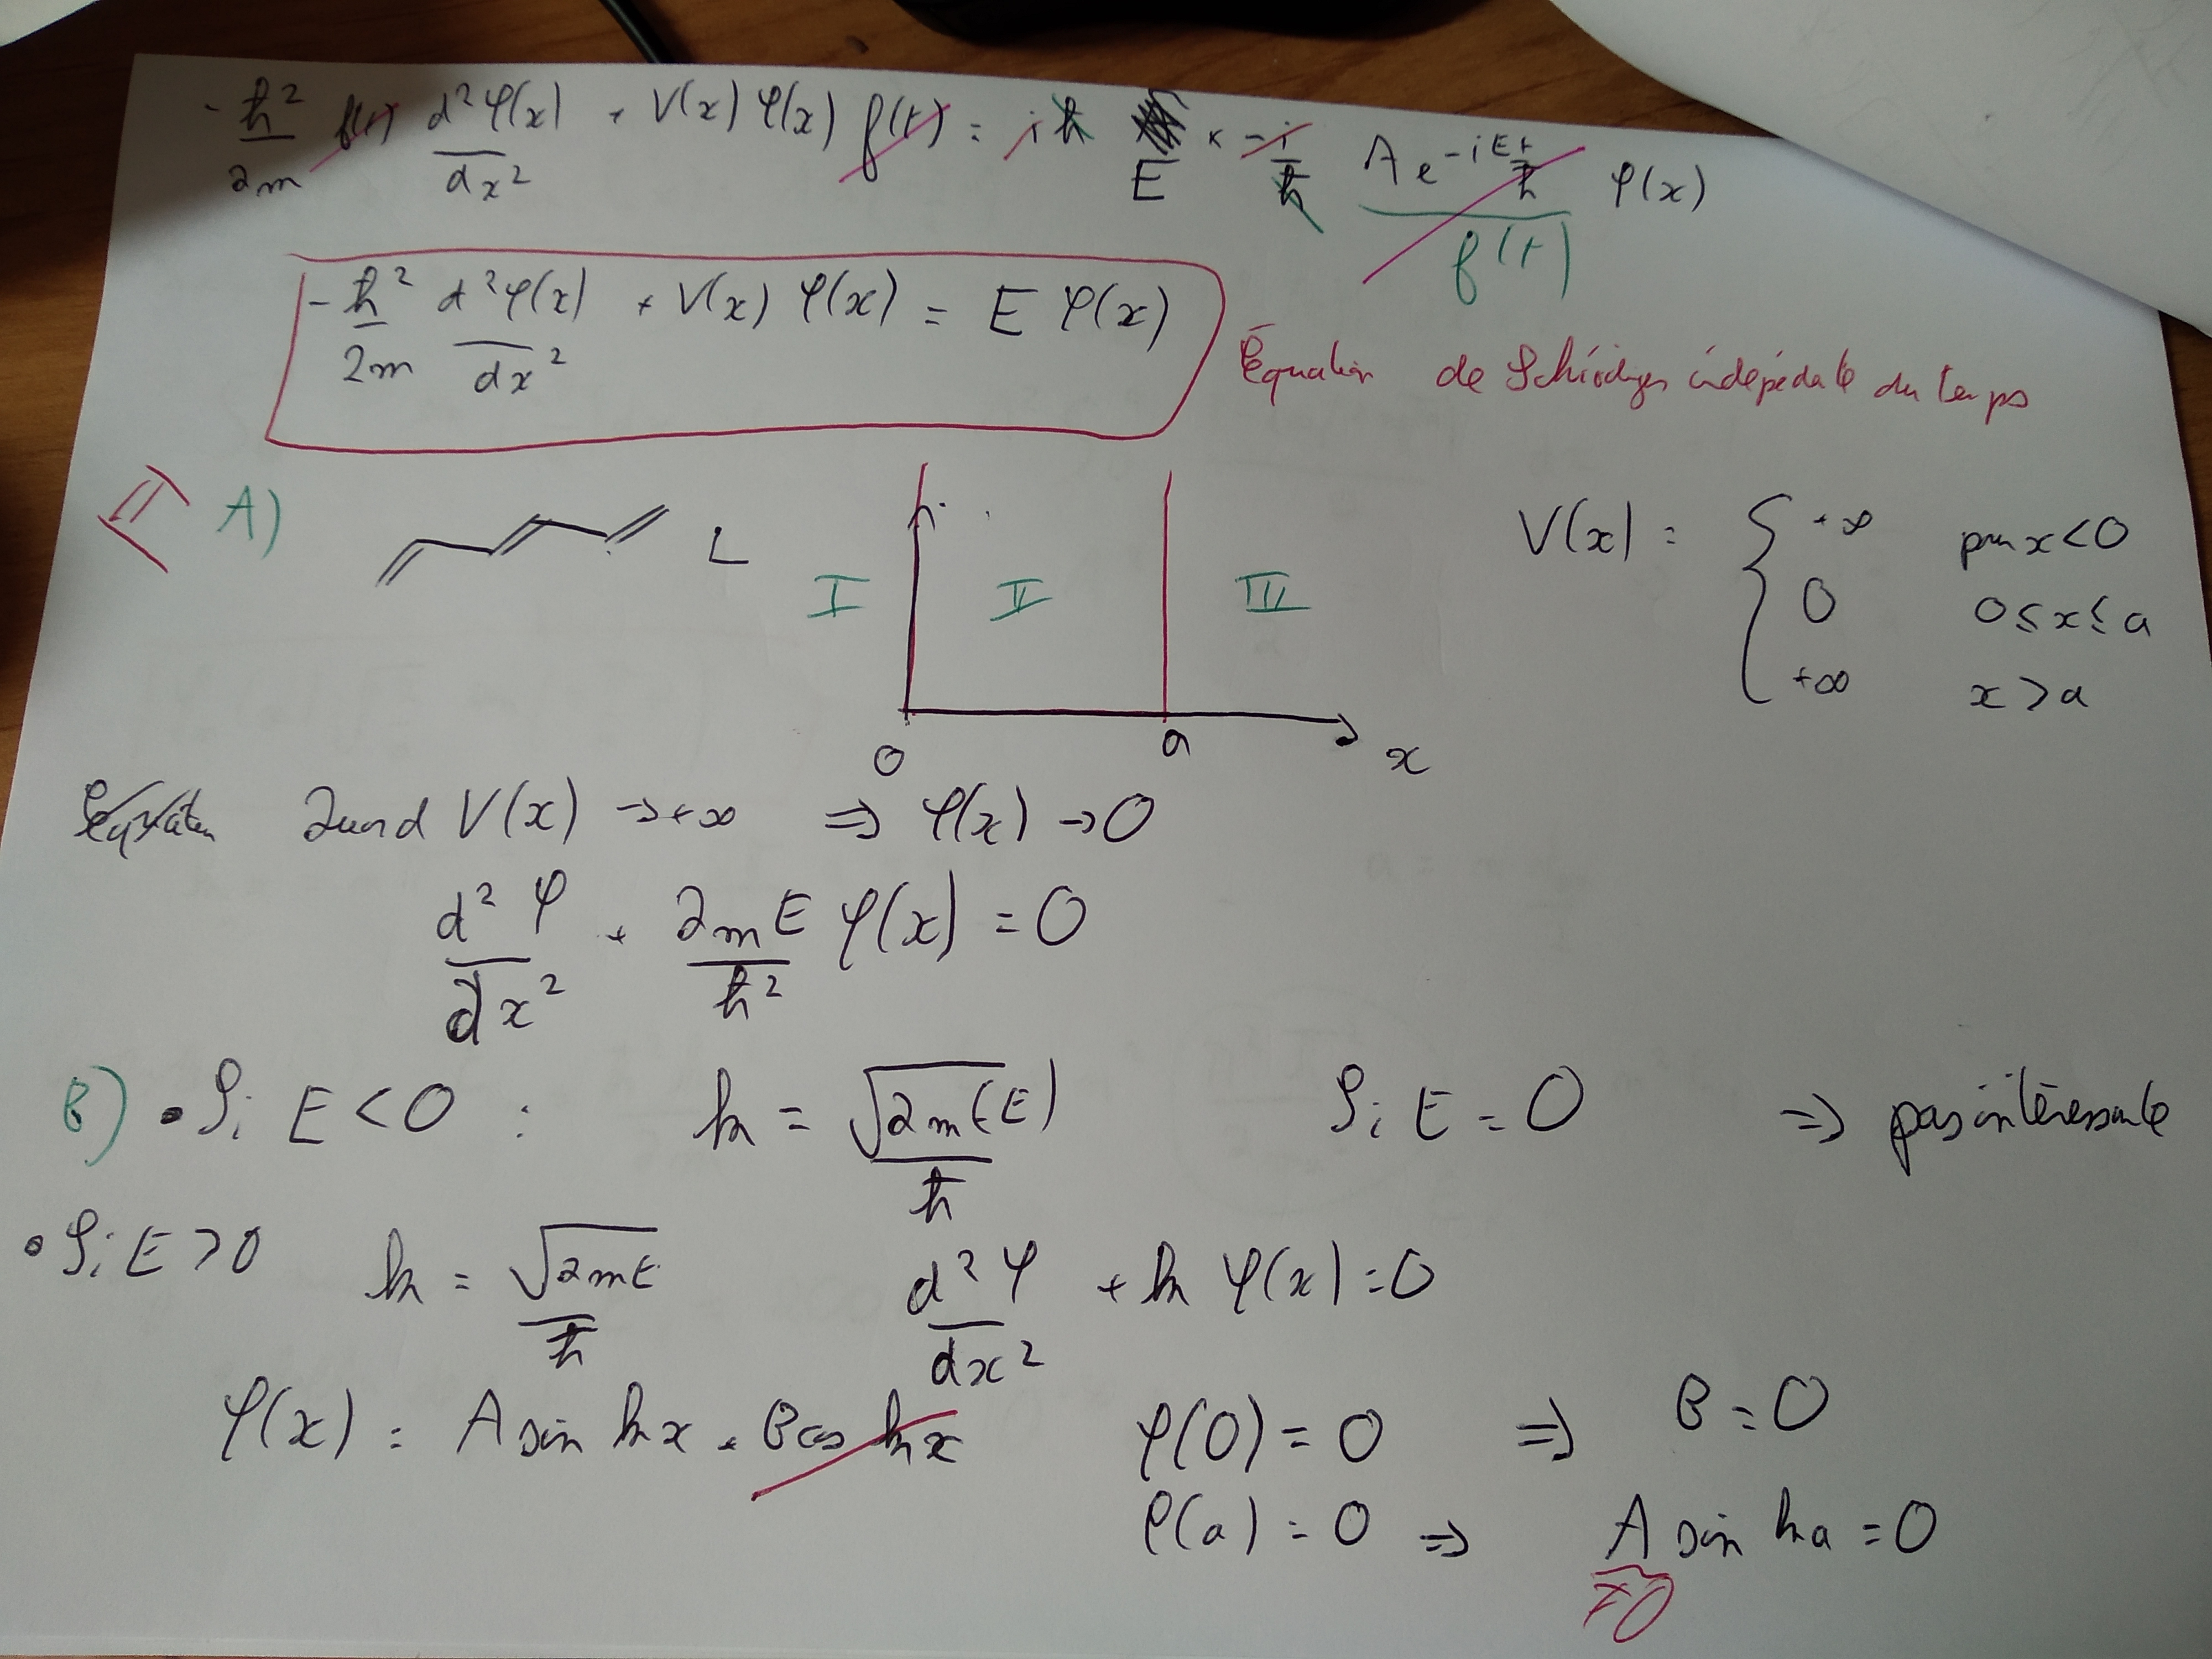 -ħ²/2m f(t) d²φ(x)/dx² + V(x) φ(x) f(t) = iħ E × -i/ħ A e^(-iEt/ħ) φ(x)
f(t)
-ħ²/2m d²φ(x)/dx² + V(x) φ(x) = E φ(x)
Équation de Schrödinger indépendante du temps
II A) L I II III V(x) = { +∞ pour x<0
0 0≤x≤a
+∞ x>a
0 a x
Équation Quand V(x) →+∞ ⇒ φ(x) →0
d²φ/dx² + 2mE/ħ² φ(x) = 0
B) • Si E<0 : k = √2m(-E)/ħ Si E=0 ⇒ pas intéressante
• Si E>0 k = √2mE/ħ d²φ/dx² + k φ(x) = 0
φ(x) = A sin kx + B cos kx φ(0) = 0 ⇒ B = 0
φ(a) = 0 ⇒ A sin ka = 0
≠0